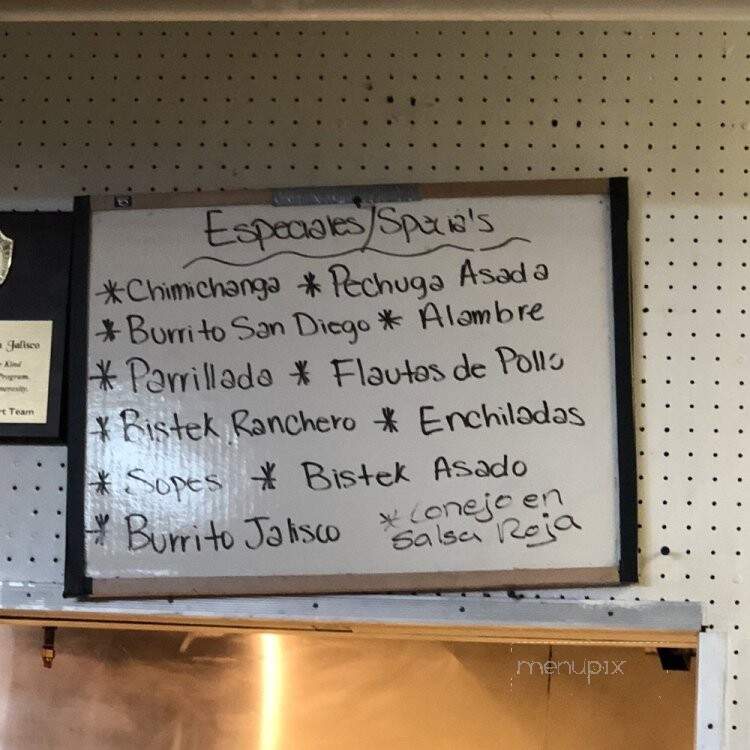 Especiales/Special's
*Chimichanga *Pechuga Asada
*Burrito San Diego * Alambre
* Parrillada * Flautas de Pollo
* Bistek Ranchero * Enchiladas
* Sopes * Bistek Asado
* Burrito Jalisco
*Conejo en
Salsa Roja
Jalisco
Kind
Program.
Team
menupix